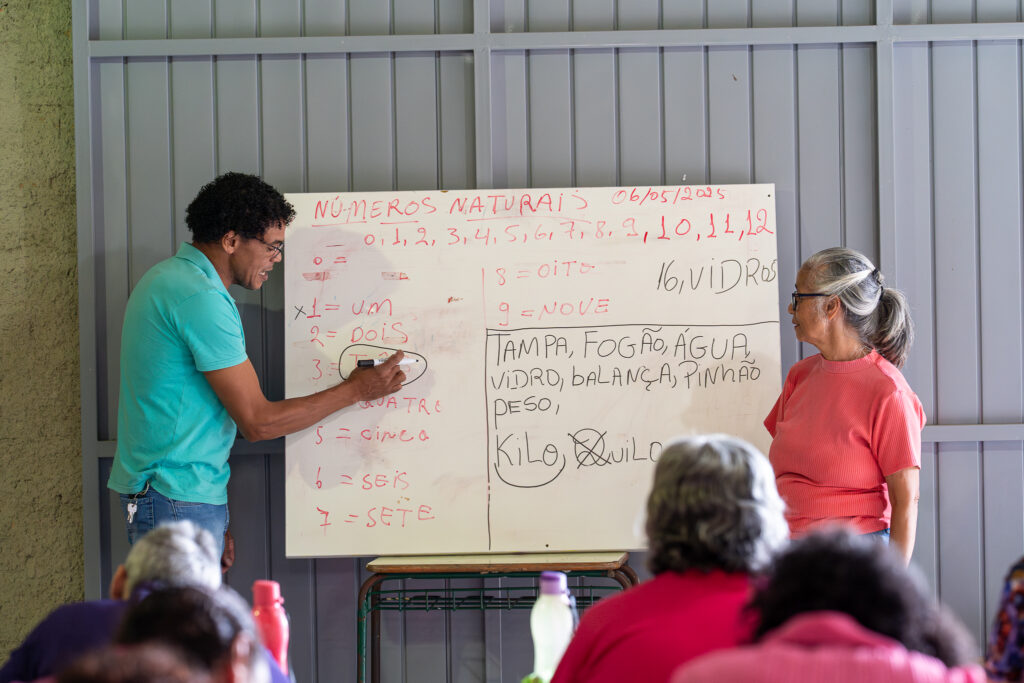 NÚMEROS NATURAIS 06/05/2025
0, 1, 2, 3, 4, 5, 6, 7, 8, 9, 10, 11, 12
0 =
1 = UM
2 = DOIS
3 =
QUATRE
5 = CINCO
6 = SEIS
7 = SETE
8 = OITO
9 = NOVE
16, VIDROS
TAMPA, FOGÃO, ÁGUA,
VIDRO, BALANÇA, PINHÃO
PESO,
KILO, QUILO